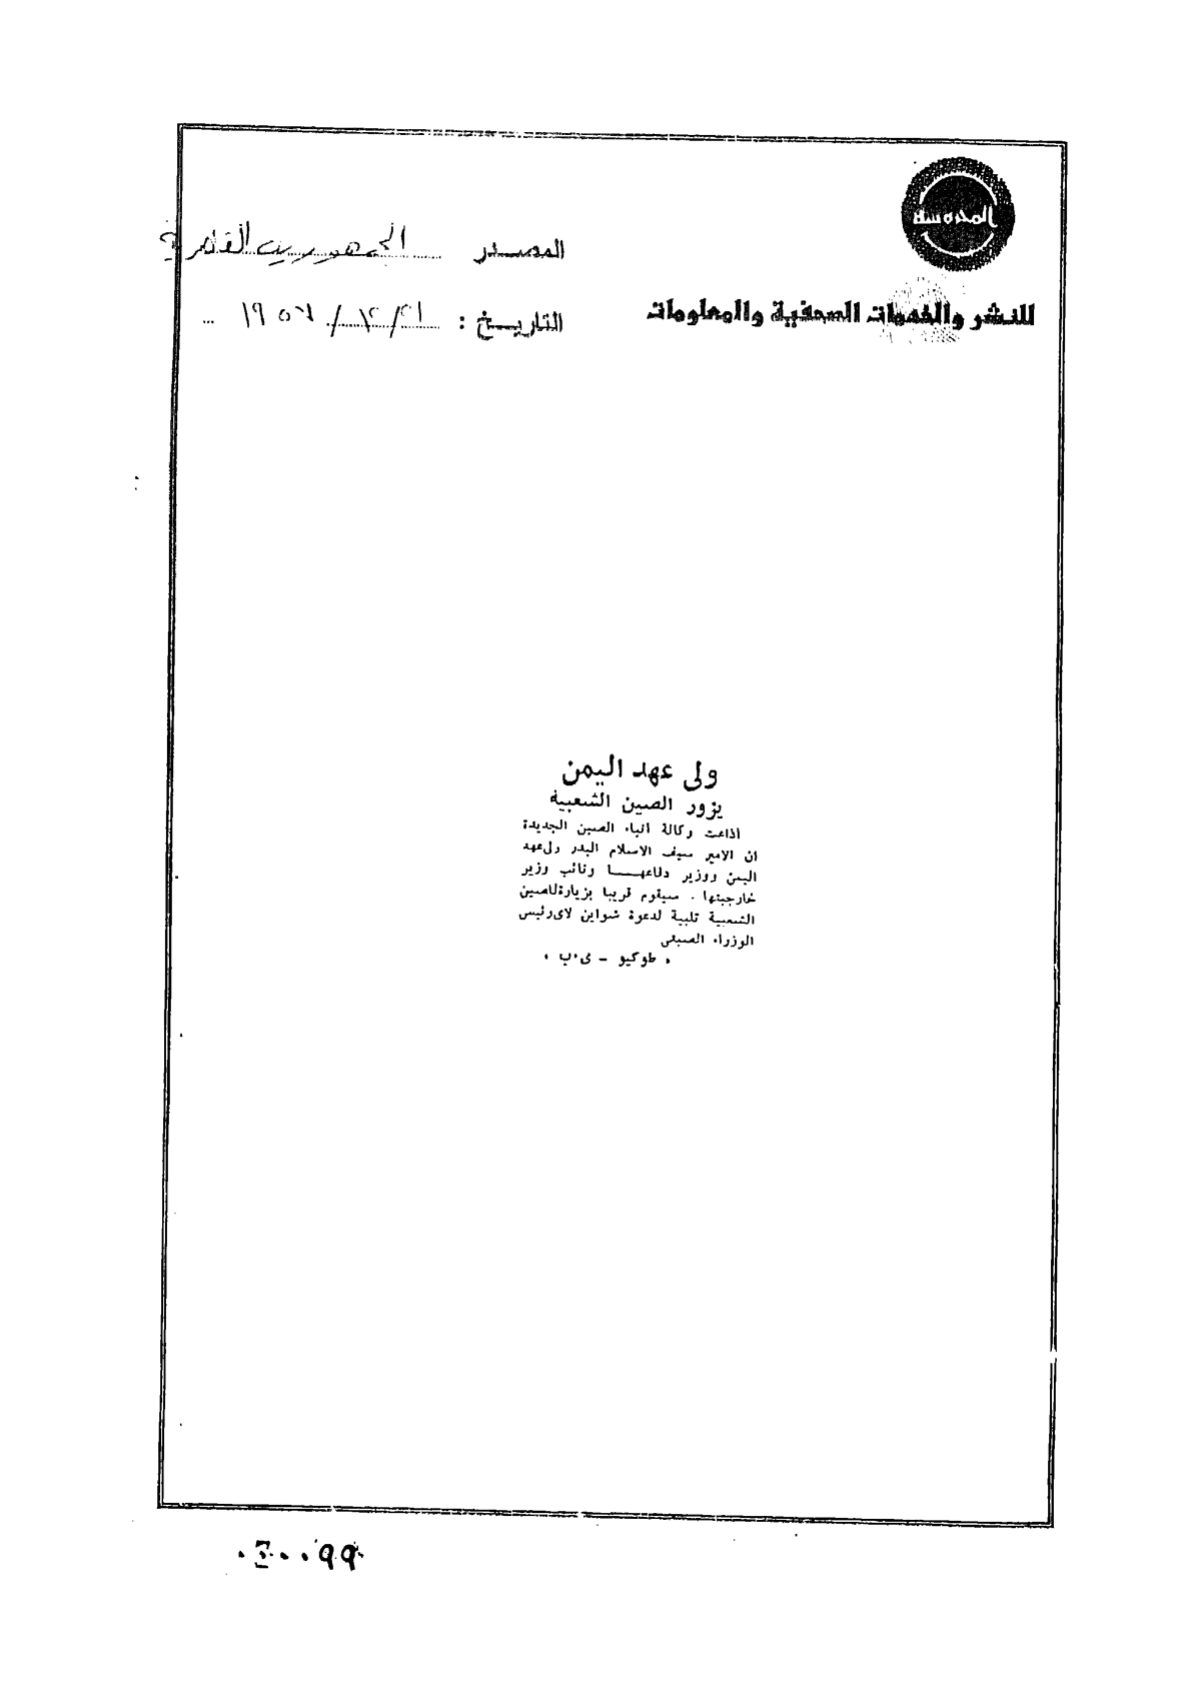 المحروسة
المصدر الجمهورية القاهرية
للنشر والخدمات الصحفية والمعلومات
التاريخ : ٢١/١٢/١٩٥٦
ولى عهد اليمن
يزور الصين الشعبية
اذاعت وكالة انباء الصين الجديدة
ان الامير سيف الاسلام البدر ولىعهد
اليمن ووزير دفاعها ونائب وزير
خارجيتها . سيقوم قريبا بزيارةللصين
الشعبية تلبية لدعوة شواين لاىرئيس
الوزراء الصينى
« طوكيو - ى.ب »